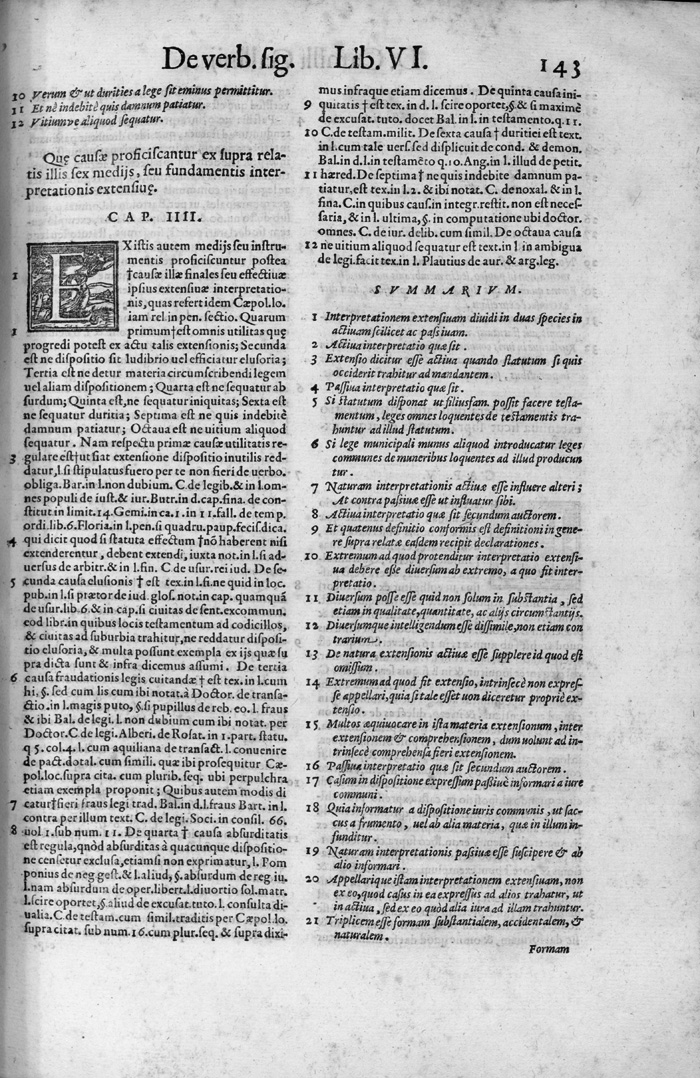 De verb. sig. Lib. VI. 143
10 Verum & ut durities a lege sit eminus permittitur.
11 Et nè indebitè quis damnum patiatur.
12 Vitiumve aliquod sequatur.
Quę causæ proficiscantur ex supra rela-
tis illis sex medijs, seu fundamentis inter-
pretationis extensiuę.
CAP. IIII.
EXistis autem medijs seu instru-
mentis proficiscuntur postea
1 †causæ illæ finales seu effectiuæ
ipsius extensiuæ interpretatio-
nis, quas refert idem Cæpol. lo.
iam rel. in pen. sectio. Quarum
1 primum†est omnis utilitas quę
progredi potest ex actu talis extensionis; Secunda
est ne dispositio sit ludibrio uel efficiatur elusoria;
Tertia est ne detur materia circumscribendi legem
uel aliam dispositionem; Quarta est ne sequatur ab
surdum; Quinta est, ne sequatur iniquitas; Sexta est
ne sequatur duritia; Septima est ne quis indebitè
damnum patiatur; Octaua est ne uitium aliquod
sequatur. Nam respectu primæ causæ utilitatis re-
3 gulare est†ut fiat extensione dispositio inutilis red-
datur, l. si stipulatus fuero per te non fieri de uerbo.
obliga. Bar. in l. non dubium. C. de legib. & in l. om-
nes populi de iust. & iur. Butr. in d. cap. fina. de con-
stitut in limit. 14. Gemi. in ca. 1. in 11. fall. de temp.
ordi. lib. 6. Floria. in l. pen. si quadru. paup. feci. dica.
4 qui dicit quod si statuta effectum †nō haberent nisi
extenderentur, debent extendi, iuxta not. in l. si ad-
uersus de arbitr. & in l. fin. C de usur. rei iud. De se-
5 cunda causa elusionis † est tex. in l. si. ne quid in loc.
pub. in l. si prætor de iud. glos. not. in cap. quamquā
de usur. lib. 6. & in cap. si ciuitas de sent. excommun.
eod libr. in quibus locis testamentum ad codicillos,
& ciuitas ad suburbia trahitur, ne reddatur disposi-
tio elusoria, & multa possunt exempla ex ijs quæ su
pra dicta sunt & infra dicemus assumi. De tertia
6 causa fraudationis legis cuitandæ † est tex. in l. cum
hi, §. sed cum lis cum ibi notat. à Doctor. de transa-
ctio. in l. magis puto, §. si pupillus de reb. eo. l. fraus
& ibi Bal. de legi. l. non dubium cum ibi notat. per
Doctor. C de legi. Alberi. de Rosat. in 1. part. statu.
q 5. col. 4. l. cum aquiliana de transact. l. conuenire
de pact. dotal. cum simili. quæ ibi prosequitur Cæ-
pol. loc. supra cita. cum plurib. seq. ubi perpulchra
etiam exempla proponit; Quibus autem modis di
7 catur†fieri fraus legi trad. Bal. in d. l. fraus Bart. in l.
contra per illum text. C. de legi. Soci. in consil. 66.
8 uol 1. sub num. 11. De quarta † causa absurditatis
est regula, quòd absurditas à quacunque dispositio-
ne censetur exclusa, etiamsi non exprimatur, l. Pom
ponius de neg. gest. & l. aliud, §. absurdum de reg. iu.
l. nam absurdum de oper. libert. l. diuortio sol. matr.
l. scire oportet, §. aliud de excusat. tuto. l. consulta di-
ualia. C de testam. cum simil. traditis per Cæpol. lo.
supra citat. sub num. 16. cum plur. seq. & supra dixi-
mus infraque etiam dicemus. De quinta causa ini-
9 quitatis † est tex. in d. l. scire oportet, §. & si maximè
de excusat. tuto. docet Bal. in l. in testamento. q. 11.
10 C. de testam. milit. De sexta causa † duritiei est text.
in l. cum tale uers. sed displicuit de cond. & demon.
Bal. in d. l. in testamēto q. 10. Ang. in l. illud de petit.
11 hæred. De septima † ne quis indebite damnum pa-
tiatur, est tex. in l. 2. & ibi notat. C. de noxal. & in l.
fina. C. in quibus caus. in integr. restit. non est neces-
saria, & in l. ultima, §. in computatione ubi doctor.
omnes. C. de iur. delib. cum simil. De octaua causa
12 ne uitium aliquod sequatur est text. in l. in ambigua
de legi. facit tex. in l. Plautius de aur. & arg. leg.
SVMMARIVM.
1 Interpretationem extensiuam diuidi in duas species in
actiuam scilicet ac passiuam.
2 Actiua interpretatio quæ sit.
3 Extensio dicitur esse actiua quando statutum si quis
occiderit trahitur ad mandantem.
4 Passiua interpretatio quæ sit.
5 Si statutum disponat ut filiusfam. possit facere testa-
mentum, leges omnes loquentes de testamentis tra-
huntur ad illud statutum.
6 Si lege municipali munus aliquod introducatur leges
communes de muneribus loquentes ad illud producun
tur.
7 Naturam interpretationis actiuæ esse influere alteri;
At contra passiuæ esse ut influatur sibi.
8 Actiua interpretatio quæ sit secundum auctorem.
9 Et quatenus definitio conformis est definitioni in gene-
re supra relatæ easdem recipit declarationes.
10 Extremum ad quod protenditur interpretatio extensi-
ua debere esse diuersum ab extremo, a quo fit inter-
pretatio.
11 Diuersum posse esse quid non solum in substantia, sed
etiam in qualitate, quantitate, ac alijs circumstantijs.
12 Diuersumque intelligendum esse dissimile, non etiam con
trarium.
13 De natura extensionis actiuæ esse supplere id quod est
omissum.
14 Extremum ad quod fit extensio, intrinsecè non expres-
se appellari, quia si tale esset uon diceretur propriè ex-
tensio.
15 Multos æquiuocare in ista materia extensionum, inter
extensionem & comprehensionem, dum uolunt ad in-
trinsecè comprehensa fieri extensionem.
16 Passiua interpretatio quæ sit secundum auctorem.
17 Casum in dispositione expressum passiuè informari a iure
communi.
18 Quia informatur a dispositione iuris communis, ut sac-
cus a frumento, uel ab alia materia, quæ in illum in-
funditur.
19 Naturam interpretationis passiuæ esse suscipere & ab
alio informari.
20 Appellarique istam interpretationem extensiuam, non
ex eo, quod casus in ea expressus ad alios trahatur, ut
in actiua, sed ex eo quòd alia iura ad illam trahuntur.
21 Triplicem esse formam substantialem, accidentalem, &
naturalem.
Formam